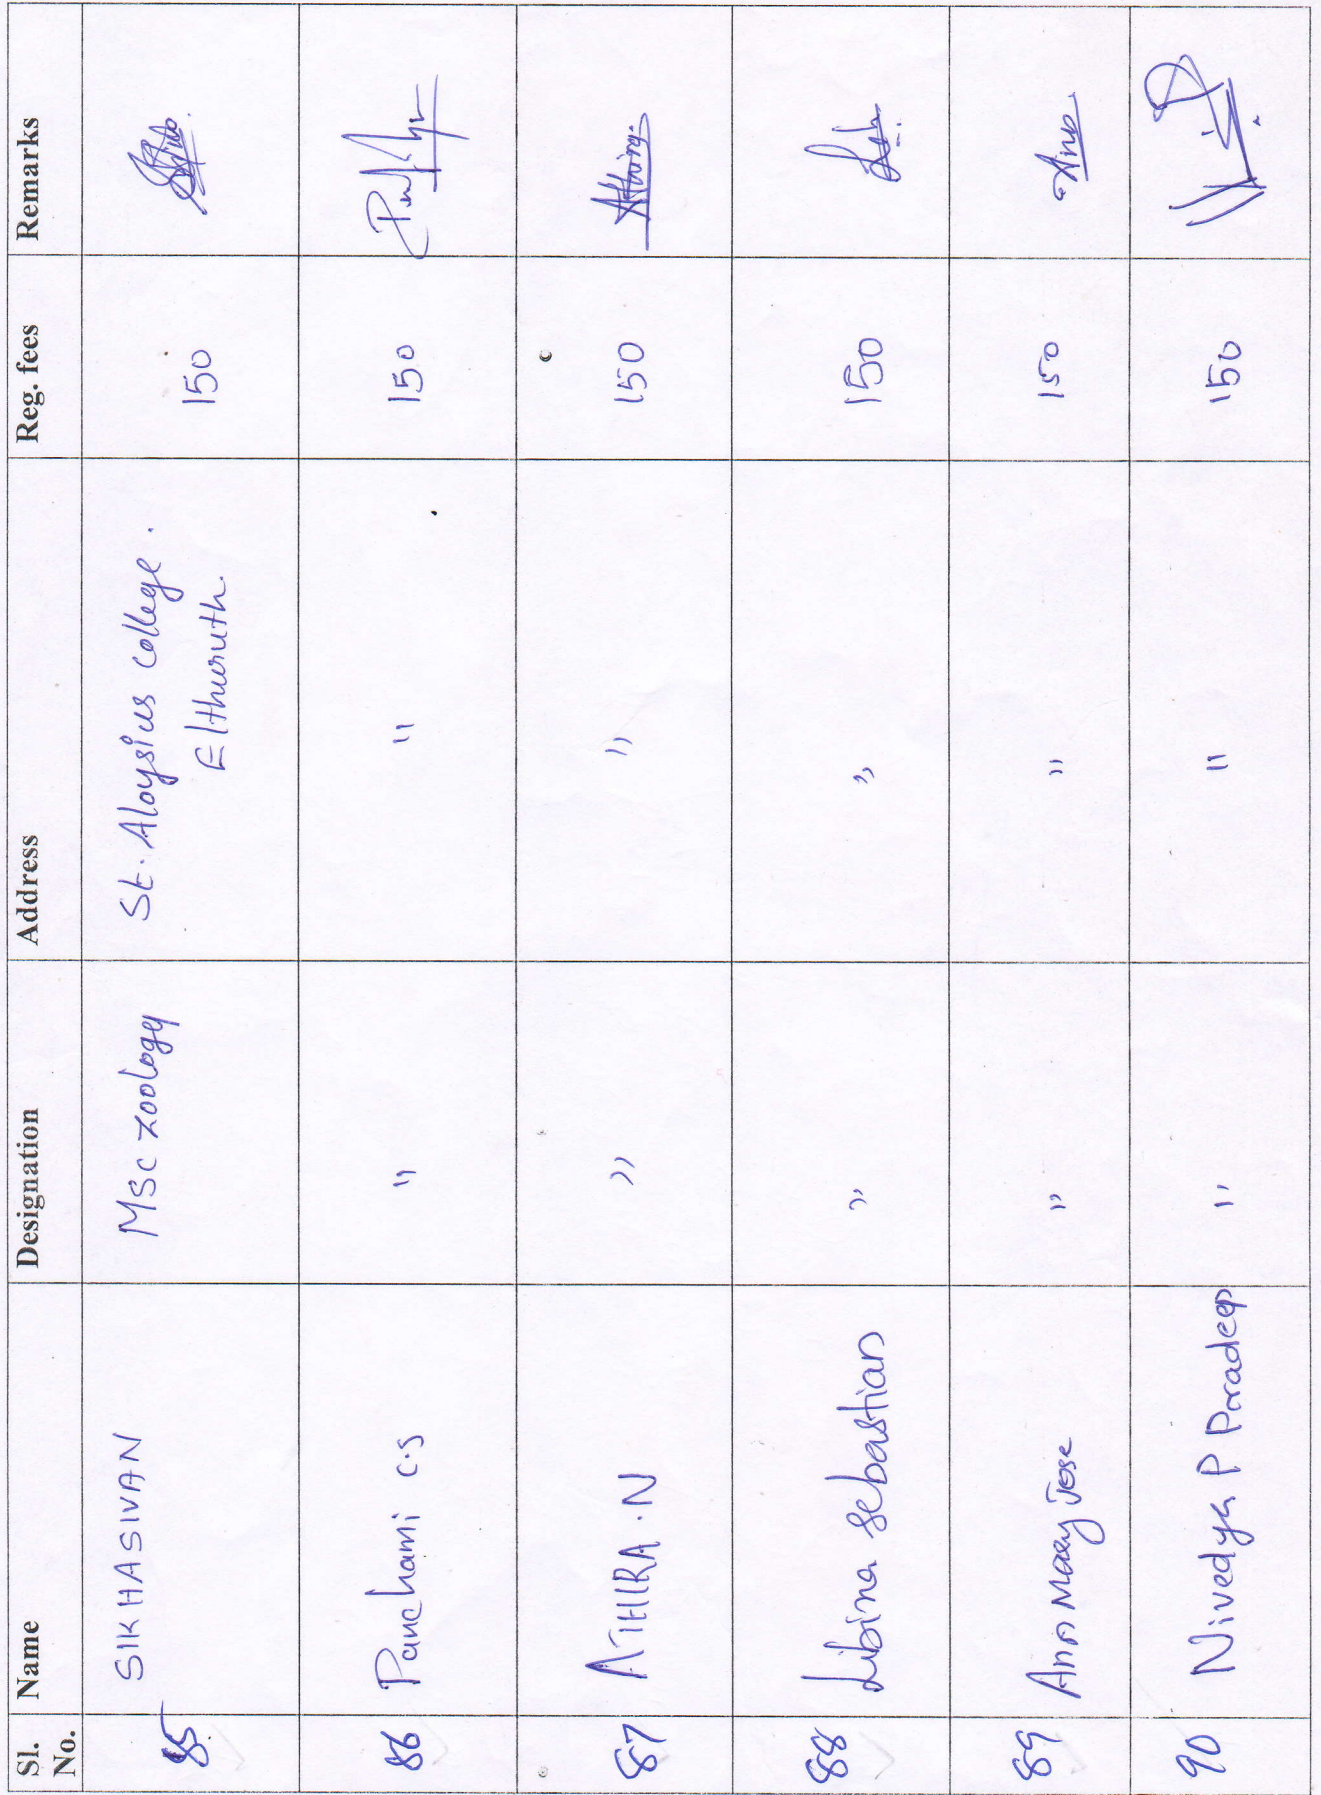 Sl. No. Name Designation Address Reg. fees Remarks
85 SIKHASIVAN MSc Zoology St. Aloysius College. Elthuruth 150
86 Panchami C.S " " 150
87 ATHIRA.N " " 150 Athira
88 Libina Sebastian " " 150
89 Ann Mary Jose " " 150 Ann
90 Nivedya P Pradeep " " 150